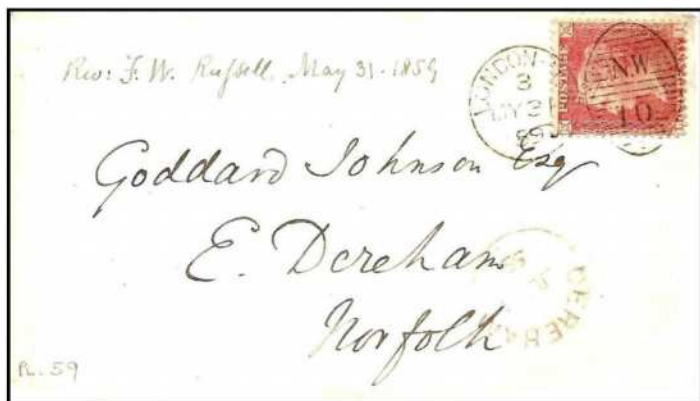 Rev: F. W. Russell. May 31-1859
LONDON
3
MY 31
59
POSTAGE
N.W
10
Goddard Johnson Esq
E. Dereham
Norfolk
DEREHAM
PL. 59